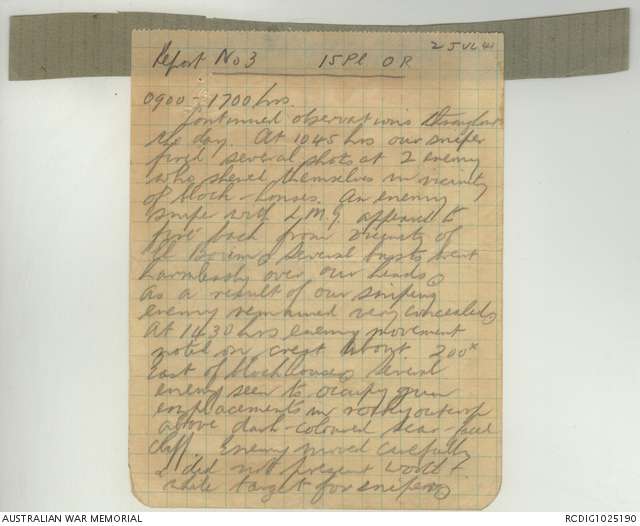 2 JUL 41
Report No 3 15 Pl O P
0900 - 1700 hrs.
Continued observations throughout
the day. At 1045 hrs our sniper
fired several shots at 2 enemy
who showed themselves in vicinity
of block-houses. An enemy
sniper with L.M.G appeared to
fire back from vicinity of
Several bursts went
harmlessly over our heads.
As a result of our sniping
enemy remained very concealed.
At 1430 hrs enemy movement
noted on crest about 200x
East of blockhouse. Several
enemy seen to occupy gun
emplacements in rocky outcrop
above dark-coloured scar-faced
cliff. Enemy moved carefully
& did not present worth-
while target for sniper.
AUSTRALIAN WAR MEMORIAL
RCDIG1025190